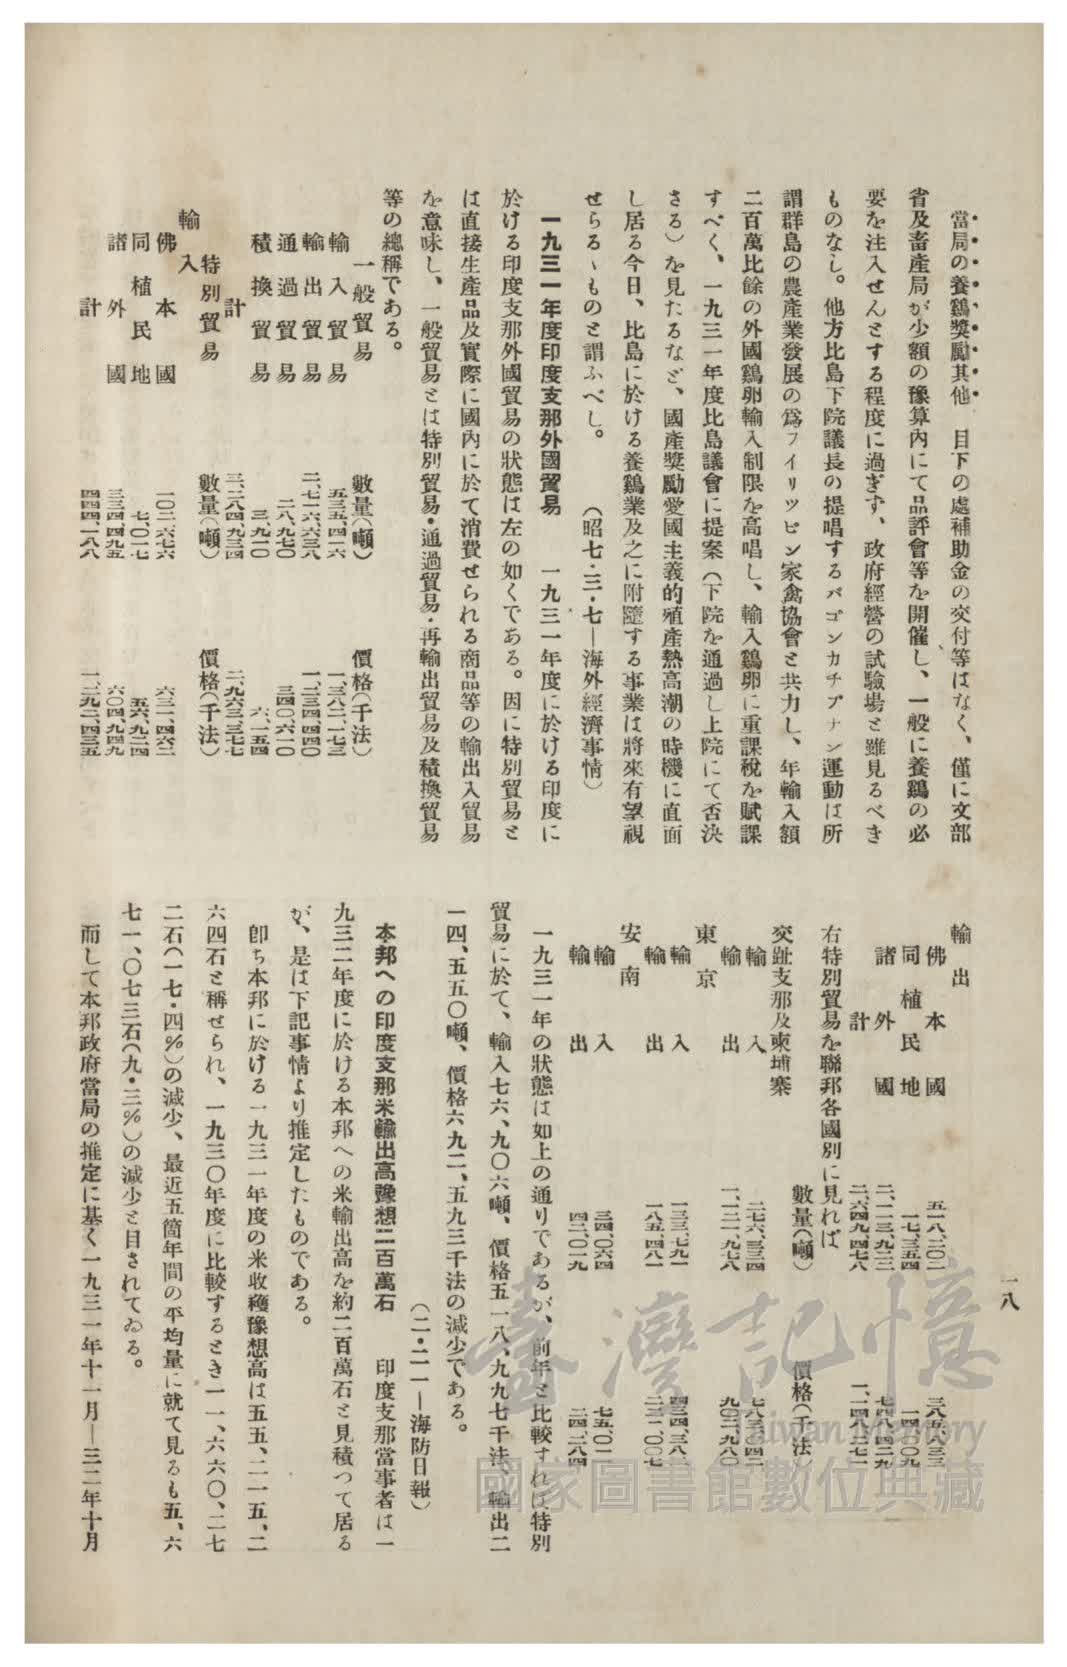 當局の養鷄獎勵其他　目下の處補助金の交付等はなく、僅に文部
省及畜產局が少額の豫算內にて品評會等を開催し、一般に養鷄の必
要を注入せんとする程度に過ぎず、政府經營の試驗場と雖見るべき
ものなし。他方比島下院議長の提唱するバゴンカチプナン運動は所
謂群島の農產業發展の爲フイリッピン家禽協會と共力し、年輸入額
二百萬比餘の外國鷄卵輸入制限を高唱し、輸入鷄卵に重課稅を賦課
すべく、一九三一年度比島議會に提案（下院を通過し上院にて否決
さる）を見たるなど、國產獎勵愛國主義的殖產熱高潮の時機に直面
し居る今日、比島に於ける養鷄業及之に附隨する事業は將來有望視
せらるゝものと謂ふべし。　（昭七・三・七―海外經濟事情）
一九三一年度印度支那外國貿易　一九三一年度に於ける印度に
於ける印度支那外國貿易の狀態は左の如くである。因に特別貿易と
は直接生產品及實際に國內に於て消費せられる商品等の輸出入貿易
を意味し、一般貿易とは特別貿易・通過貿易・再輸出貿易及積換貿易
等の總稱である。
一般貿易　數量（噸）　價格（千法）
輸入貿易　五三五、四一六　一、三八二、一七三
輸出貿易　二、七一六、六三八　一、二三四、四四〇
通過貿易　二八、九七〇　三四〇、六一〇
積換貿易　三、九一〇　六、一五四
計　三、二八四、九三四　二、九六三、三七七
特別貿易　數量（噸）　價格（千法）
輸入
佛本國　一〇二、六七六　六三一、四六二
同植民地　七、〇一七　五六、九二四
諸外國　三三四、四九五　六〇四、九四九
計　四四四、一八八　一、二九二、四三五
輸出
佛本國　五一八、二〇二　三八五、八三三
同植民地　一七、三五四　一四、〇〇九
諸外國　二、一一三、九二三　七四八、四二九
計　二、六四九、四七八　一、一四八、二七一
右特別貿易を聯邦各國別に見れば
數量（噸）　價格（千法）
交趾支那及柬埔寨
輸入　二七六、三三四　七八三、〇四二
輸出　一、一二一、九七八　九〇二、九八〇
東京
輸入　一三三、七九一　四三四、三八二
輸出　一八五、四八一　二二一、〇〇七
安南
輸入　三四、〇六四　七五、〇一一
輸出　四二、〇一九　二四、二八四
一九三一年の狀態は如上の通りであるが、前年と比較すれば特別
貿易に於て、輸入七六、九〇六噸、價格五一八、九九七千法、輸出二
一四、五五〇噸、價格六九二、五九三千法の減少である。
（二・二一―海防日報）
本邦への印度支那米輸出高豫想二百萬石　印度支那當事者は一
九三二年度に於ける本邦への米輸出高を約二百萬石と見積つて居る
が、是は下記事情より推定したものである。
卽ち本邦に於ける一九三一年度の米收穫豫想高は五五、二一五、二
六四石と稱せられ、一九三〇年度に比較するとき一一、六六〇、二七
二石（一七・四％）の減少、最近五箇年間の平均量に就て見るも五、六
七一、〇七三石（九・三％）の減少と目されてゐる。
而して本邦政府當局の推定に基く一九三一年十一月―三二年十月
一八
臺灣記憶
Taiwan Memory
國家圖書館數位典藏